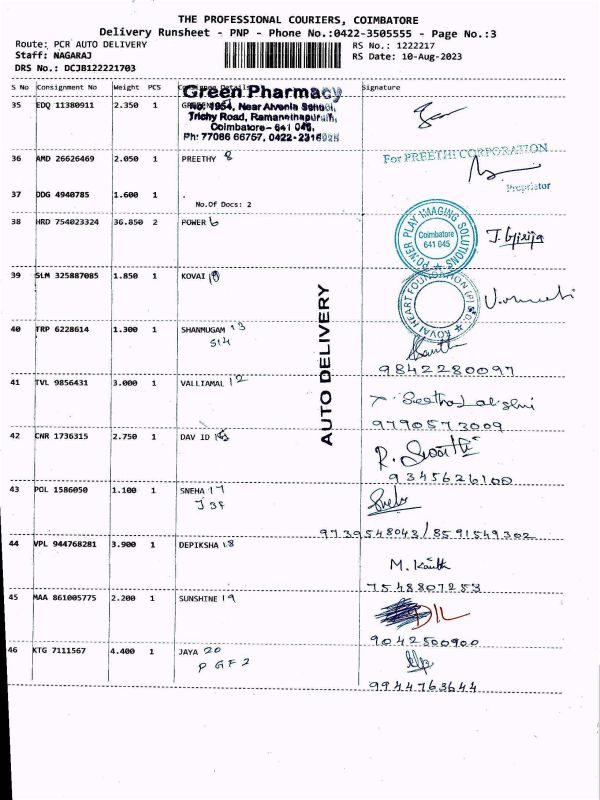 THE PROFESSIONAL COURIERS, COIMBATORE
Delivery Runsheet - PNP - Phone No.:0422-3505555 - Page No.:3
Route: PCR AUTO DELIVERY RS No.: 1222217
Staff: NAGARAJ RS Date: 10-Aug-2023
DRS No.: DCJB122221703
S No Consignment No Weight PCS Consignee Details Signature
Green Pharmacy
35 EDQ 11380911 2.350 1 GREEN No: 1954, Near Alvenia School,
Trichy Road, Ramanathapuram,
Coimbatore - 641 045.
Ph: 77086 66757, 0422-2316925
36 AMD 26626469 2.050 1 PREETHY 8 For PREETHI CORPORATION
Proprietor
37 DDG 4940785 1.600 1 .
No.Of Docs: 2
38 HRD 754023324 36.850 2 POWER 6 POWER PLAY IMAGING SOLUTIONS Coimbatore 641 045
39 SLM 325887085 1.850 1 KOVAI KOVAI HEART FOUNDATION (P)
AUTO DELIVERY
40 TRP 6228614 1.300 1 SHANMUGAM 13
S14
9842280097
41 TVL 9856431 3.000 1 VALLIAMAL 12 Seethalakshmi
9790573009
42 CNR 1736315 2.750 1 DAV ID
9345626100
43 POL 1586050 1.100 1 SNEHA 17 Sneha
J 3F
9739548043/8591549302
44 VPL 944768281 3.900 1 DEPIKSHA 18
M.
7548807253
45 MAA 861005775 2.200 1 SUNSHINE 19 DIL
9042500900
46 KTG 7111567 4.400 1 JAYA 20
P GF2
9944763644